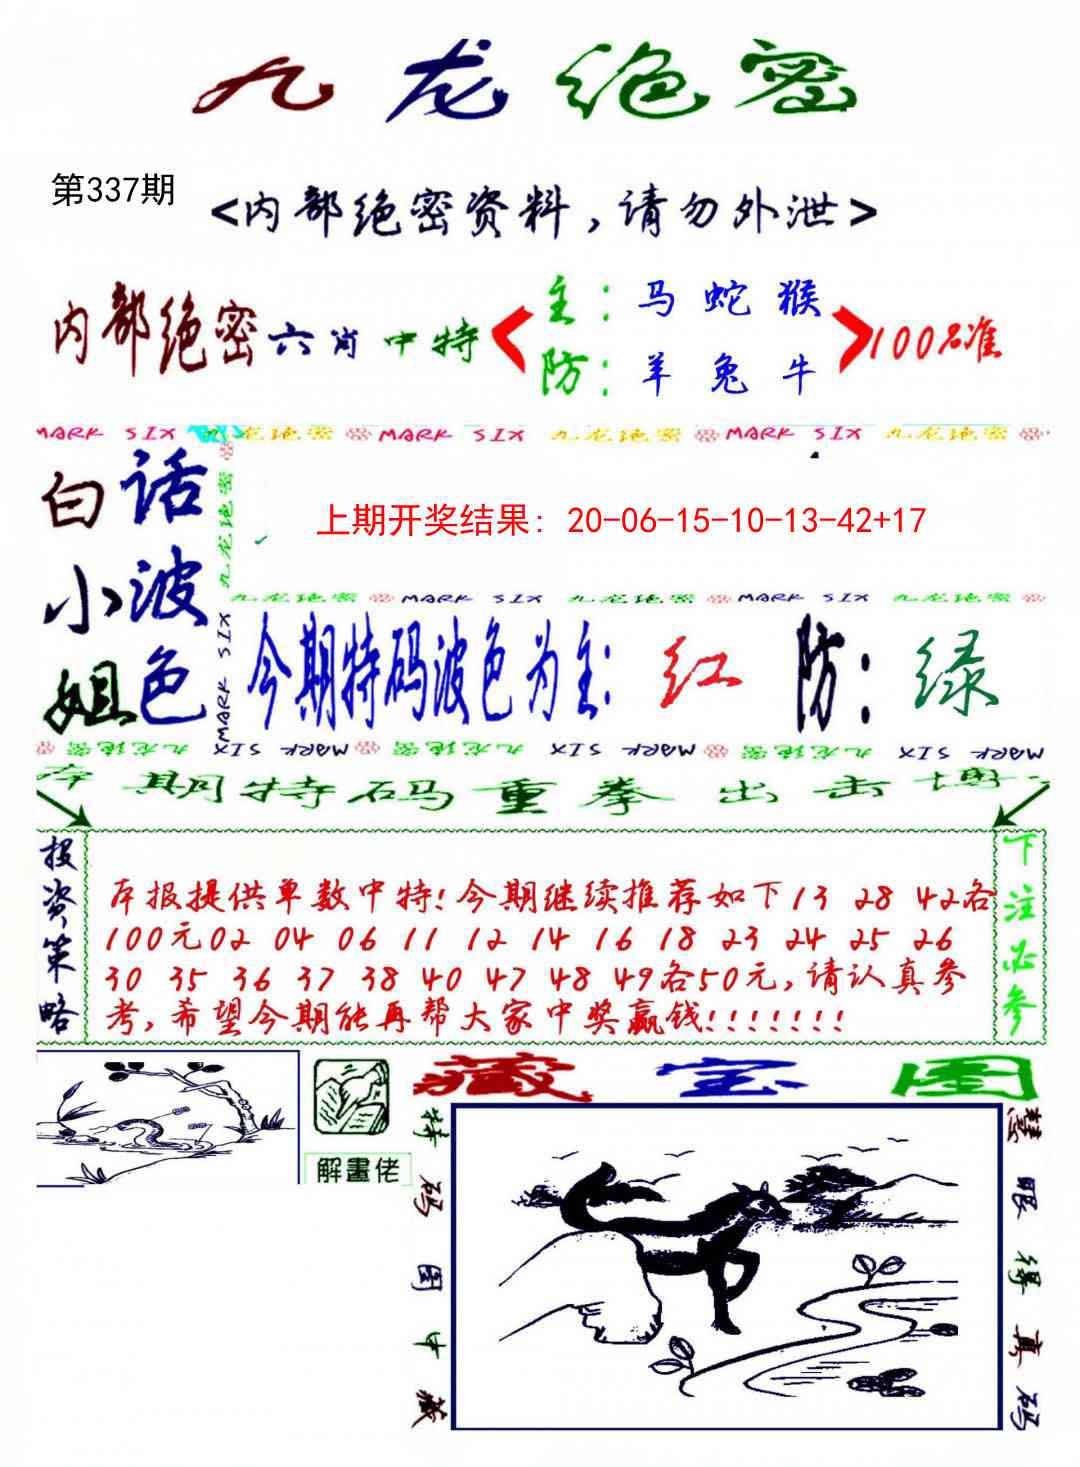 九龙绝密
第337期
<内部绝密资料,请勿外泄>
内部绝密六肖中特
主:马 蛇 猴
防:羊 兔 牛
100%准
MARK SIX 九龙绝密 MARK SIX 九龙绝密 MARK SIX 九龙绝密
九龙绝密
MARK SIX
白话小波姐色
上期开奖结果: 20-06-15-10-13-42+17
九龙绝密 MARK SIX 九龙绝密 MARK SIX 九龙绝密
今期特码波色为主: 红 防: 绿
九龙绝密 MARK SIX 九龙绝密 MARK SIX 九龙绝密 MARK SIX
本期特码重拳出击博
投资策略
本报提供单数中特!今期继续推荐如下13 28 42各
100元02 04 06 11 12 14 16 18 23 24 25 26
30 35 36 37 38 40 47 48 49各50元,请认真参
考,希望今期能再帮大家中奖赢钱!!!!!!!
下注必参
解畫佬
藏宝图
特码图中藏
慧眼得真码